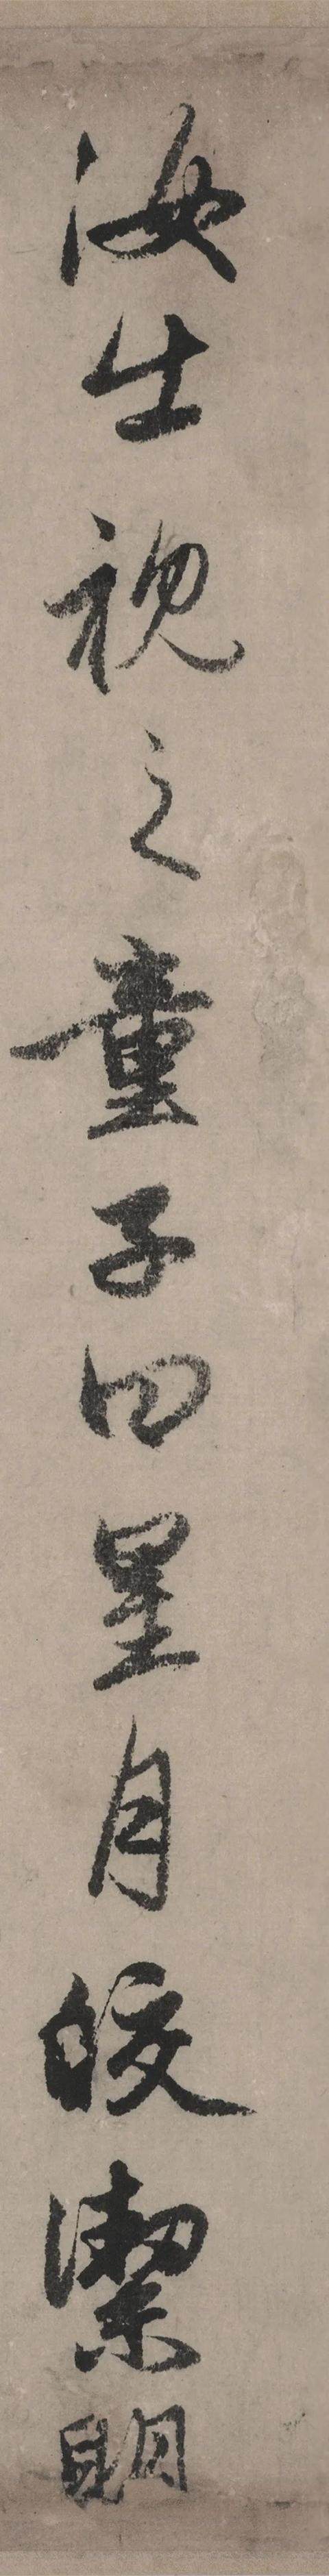 汝出視之童子曰星月皎潔明